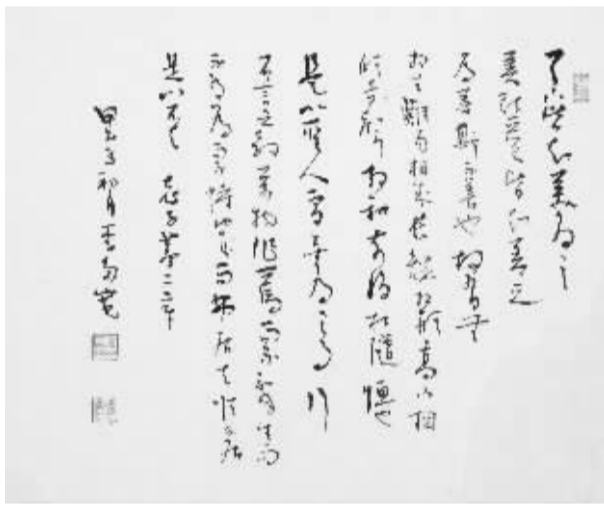 天下皆知美為之
美斯惡已皆知善之
為善斯不善也故有無
相生難易相成長短相形高下相
傾音聲相和前後相隨恒也
是以聖人處無為之事行
不言之教萬物作焉而生而
不有為而不恃功成而弗居夫唯弗居
是以不去 老子第二章